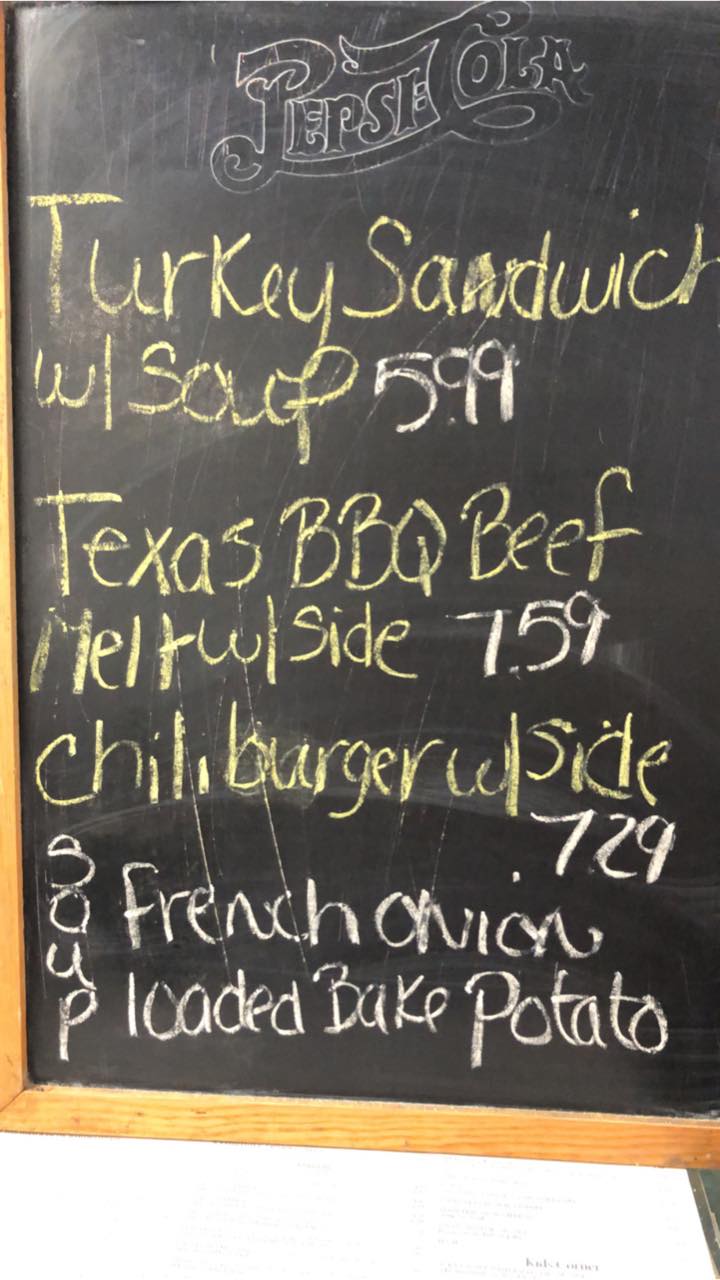 PEPSI COLA
Turkey Sandwich
w/ Soup 5.99
Texas BBQ Beef
Melt w/ side 7.59
Chili burger w/ side
7.29
Soup
French onion
loaded Bake Potato
Kids Corner